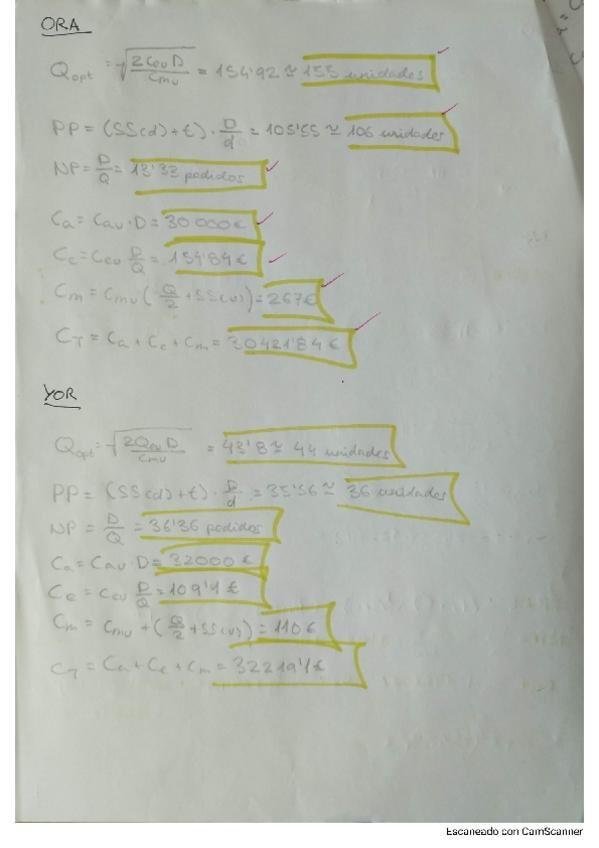 ORA
Qopt = √(2Ceu D / Cmu) = 154'92 ≅ 155 unidades
PP = (SS(d) + t) · D/d = 105'55 ≅ 106 unidades
NP = D/Q = 13'33 pedidos
Ca = Cau · D = 30 000 €
Ce = Ceu D/Q = 154'84 €
Cm = Cmu (Q/2 + SS(u)) = 267 €
CT = Ca + Ce + Cm = 30421'84 €
YOR
Qopt = √(2Qeu D / Cmu) = 43'8 ≅ 44 unidades
PP = (SS(d) + t) · D/d = 35'56 ≅ 36 unidades
NP = D/Q = 36'36 pedidos
Ca = Cau · D = 32000 €
Ce = Ceu D/Q = 109'1 €
Cm = Cmu + (Q/2 + SS(u)) = 110 €
CT = Ca + Ce + Cm = 32219'1 €
Escaneado con CamScanner